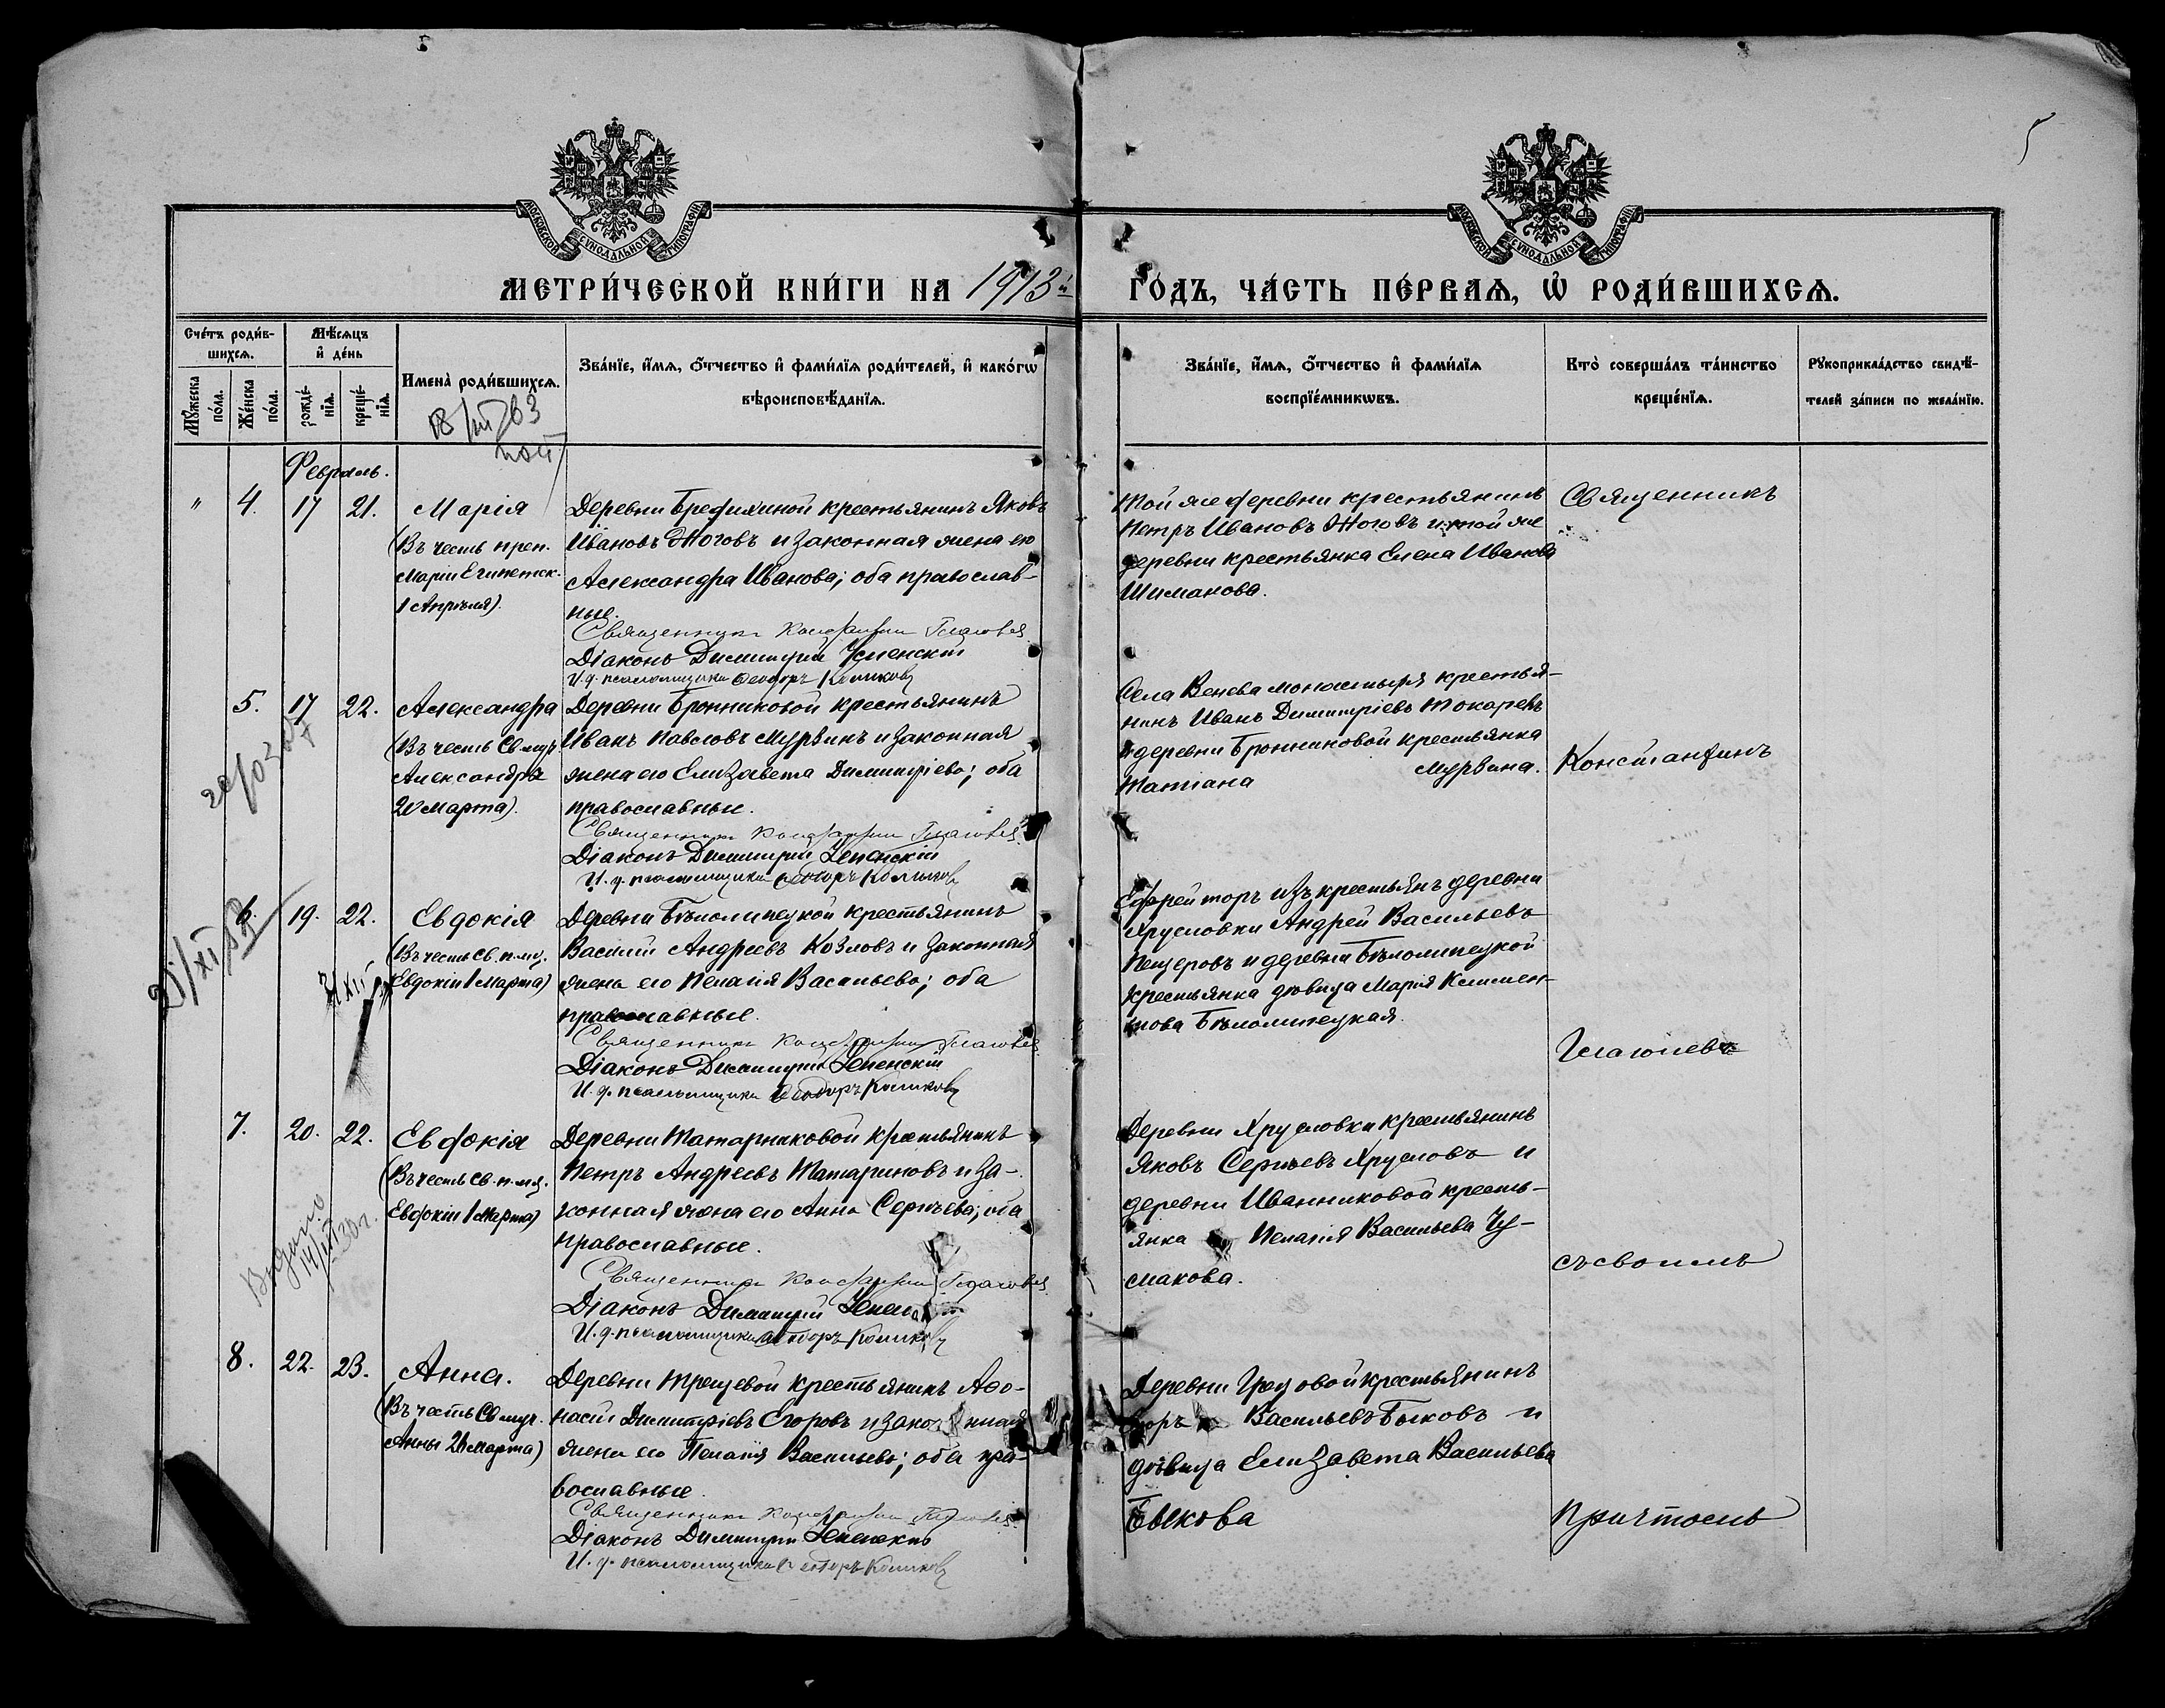 5
МОСКОВСКОЙ СѴНОДАЛЬНОЙ ТИПОГРАФІИ
МОСКОВСКОЙ СѴНОДАЛЬНОЙ ТИПОГРАФІИ
МЕТРИ́ЧЕСКОЙ КНИ́ГИ НА 1913й ГО́ДЪ, ЧА́СТЬ ПЕ́РВАѦ, Ѽ РОДИ́ВШИХСѦ.
Сче́тъ роди́в-
шихсѧ.
Мꙋ́жеска по́ла.
Же́нска по́ла.
Мѣ́сѧцъ
и҆ де́нь
рожде́-
нїѧ.
креще́-
нїѧ.
Имена̀ роди́вшихсѧ.
Зва́нїе, и҆́мѧ, ѻ҆́тчество и҆ фами́лїѧ роди́телей, и҆ како́гѡ
вѣроисповѣ́данїѧ.
Зва́нїе, и҆́мѧ, ѻ҆́тчество и҆ фами́лїѧ
воспрїе́мникѡвъ.
Кто̀ соверша́лъ та́инство
креще́нїѧ.
Рꙋкоприкла́дство свидѣ́-
телей за́писи по жела́нїю.
18/III 63
Февраль.
" 4. 17 21.
Марія
(Въ честь преп.
Маріи Египетск.
1 Апрѣля).
Деревни Бредихиной крестьянинъ Яковъ
Ивановъ Жоговъ и законная жена его
Александра Иванова; оба православ-
ные.
Священникъ Константинъ Глаголевъ
Діаконъ Димитрій Успенскій
И. д. псаломщика Ѳеодоръ Колшковъ
Той же деревни крестьянинъ
Петръ Ивановъ Жоговъ и той же
деревни крестьянка Елена Иванова
Шиманова.
Священникъ
5. 17 22.
Александра
(Въ честь Св. муч.
Александры
20 Марта).
Деревни Бронниковой крестьянинъ
Иванъ Павловъ Мурзинъ и законная
жена его Елизавета Димитріева; оба
православные.
Священникъ Константинъ Глаголевъ
Діаконъ Димитрій Успенскій
И. д. псаломщика Ѳеодоръ Колшковъ
Села Венева монастыря крестья-
нинъ Иванъ Димитріевъ Токаревъ
и деревни Бронниковой крестьянка
Татіана Мурзина.
Константинъ
6. 19. 22.
Евдокія
(Въ честь Св. п. муч.
Евдокіи 1 Марта)
Деревни Бѣлолипецкой крестьянинъ
Василій Андреевъ Козловъ и законная
жена его Пелагія Васильева; оба
православные.
Священникъ Константинъ Глаголевъ
Діаконъ Димитрій Успенскій
И. д. псаломщика Ѳеодоръ Колшковъ
Ефрейторъ изъ крестьянъ деревни
Хрусловки Андрей Васильевъ
Пещеровъ и деревни Бѣлолипецкой
крестьянка дѣвица Марія Климен-
това Бѣлолипецкая.
Глаголевъ
7. 20. 22.
Евдокія
(Въ честь Св. п. муч.
Евдокіи 1 Марта)
Выдано
14/III 30 г.
Деревни Татарниковой крестьянинъ
Петръ Андреевъ Татариновъ и за-
конная жена его Анна Сергѣева; оба
православные.
Священникъ Константинъ Глаголевъ
Діаконъ Димитрій Успенскій
И. д. псаломщика Ѳеодоръ Колшковъ
Деревни Хрусловки крестьянинъ
Яковъ Сергѣевъ Хрусловъ и
деревни Иванниковой кресть-
янка Пелагія Васильева Чу-
слакова.
съ своимъ
8. 22. 23.
Анна.
(Въ честь Св. муч.
Анны 26 Марта)
Деревни Трещевой крестьянинъ Аѳо-
насій Димитріевъ Егоровъ и законная
жена его Пелагія Васильева; оба пра-
вославные.
Священникъ Константинъ Глаголевъ
Діаконъ Димитрій Успенскій
И. д. псаломщика Ѳеодоръ Колшковъ
Деревни Грызовой крестьянинъ
Васильевъ Быковъ и
дѣвица Елизавета Васильева
Быкова
Причтомъ